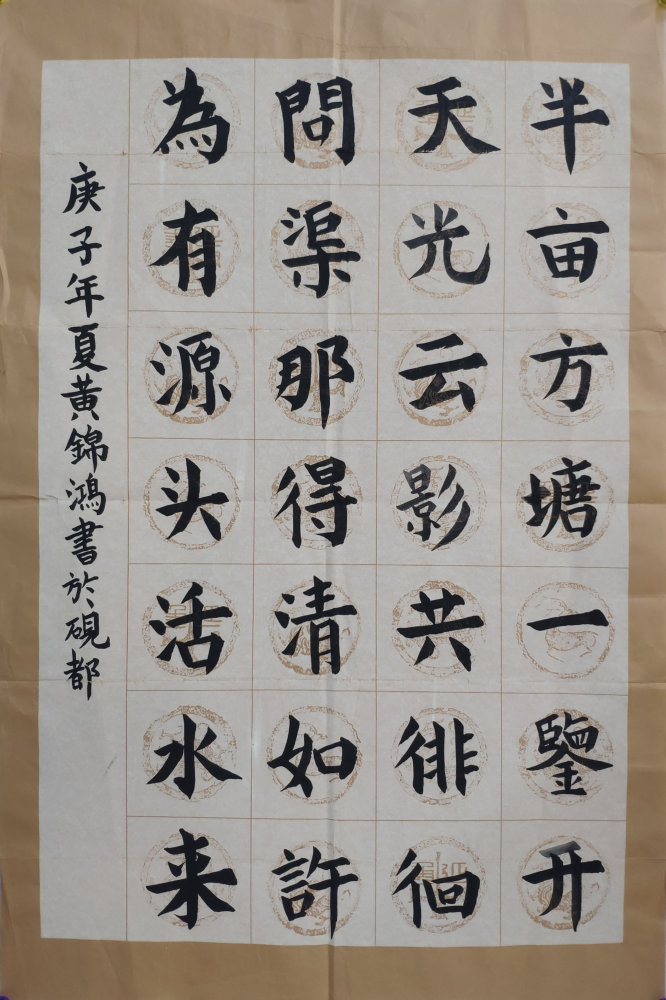 半亩方塘一鑒开
天光云影共徘徊
問渠那得清如許
為有源头活水来
庚子年夏黄錦鴻書於硯都